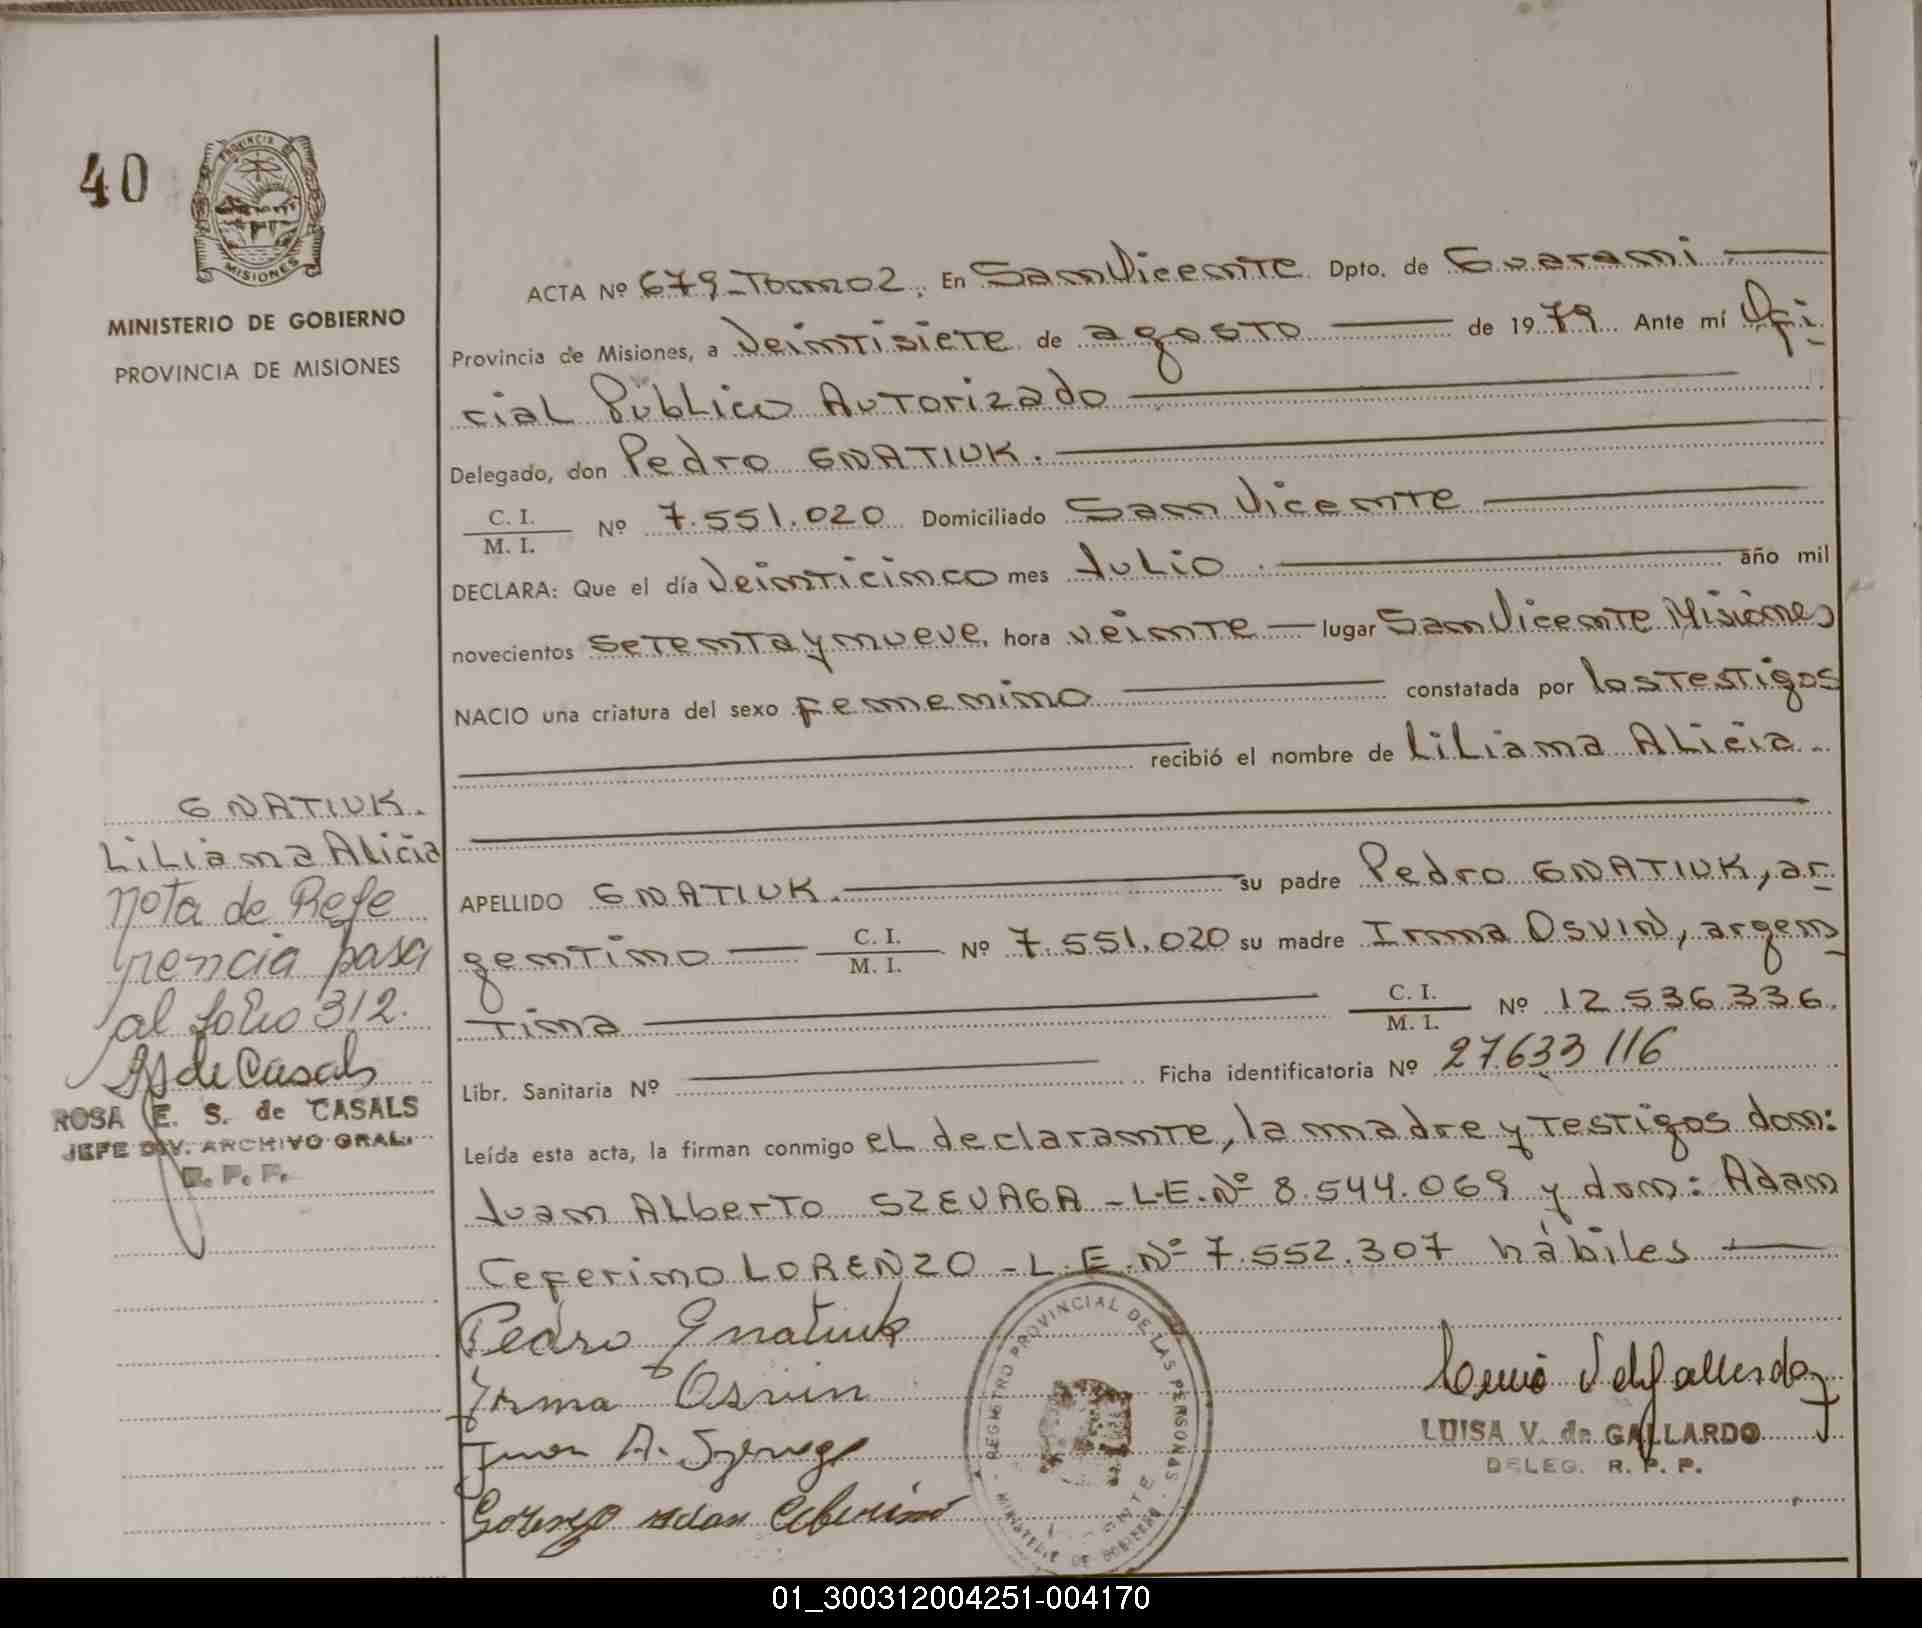 40
PROVINCIA DE
MISIONES
MINISTERIO DE GOBIERNO
PROVINCIA DE MISIONES
ACTA Nº 679-Tomo 2. En San Vicente Dpto. de Guarani
Provincia de Misiones, a Veintisiete de agosto de 1979. Ante mí Ofi-
cial Público Autorizado
Delegado, don Pedro GNATIUK.
C. I.
M. I. Nº 7.551.020 Domiciliado San Vicente
DECLARA: Que el día Veinticinco mes Julio año mil
novecientos setenta y nueve, hora veinte lugar San Vicente Misiones
NACIO una criatura del sexo femenino constatada por los Testigos
recibió el nombre de Liliana Alicia
APELLIDO GNATIUK. su padre Pedro GNATIUK, ar-
gentino C. I.
M. I. Nº 7.551.020 su madre Irma OSVIN, argen-
tina C. I.
M. I. Nº 12.536.336.
Libr. Sanitaria Nº Ficha identificatoria Nº 27.633 116
Leída esta acta, la firman conmigo el declarante, la madre y testigos don:
Juan Alberto SZEVAGA - L.E. Nº 8.544.069 y don: Adam
Ceferino LORENZO - L.E. Nº 7.552.307 hábiles
Pedro Gnatiuk
Irma Osvin
Juan A.
Lorenzo Adan Ceferino
REGISTRO PROVINCIAL DE LAS PERSONAS
MINISTERIO DE GOBIERNO
LUISA V. de GALLARDO
DELEG. R. P. P.
GNATIUK.
Liliana Alicia
Nota de Refe
rencia pasa
al folio 312.
de Casals
ROSA E. S. de CASALS
JEFE DIV. ARCHIVO GRAL.
R. P. P.
01_300312004251-004170